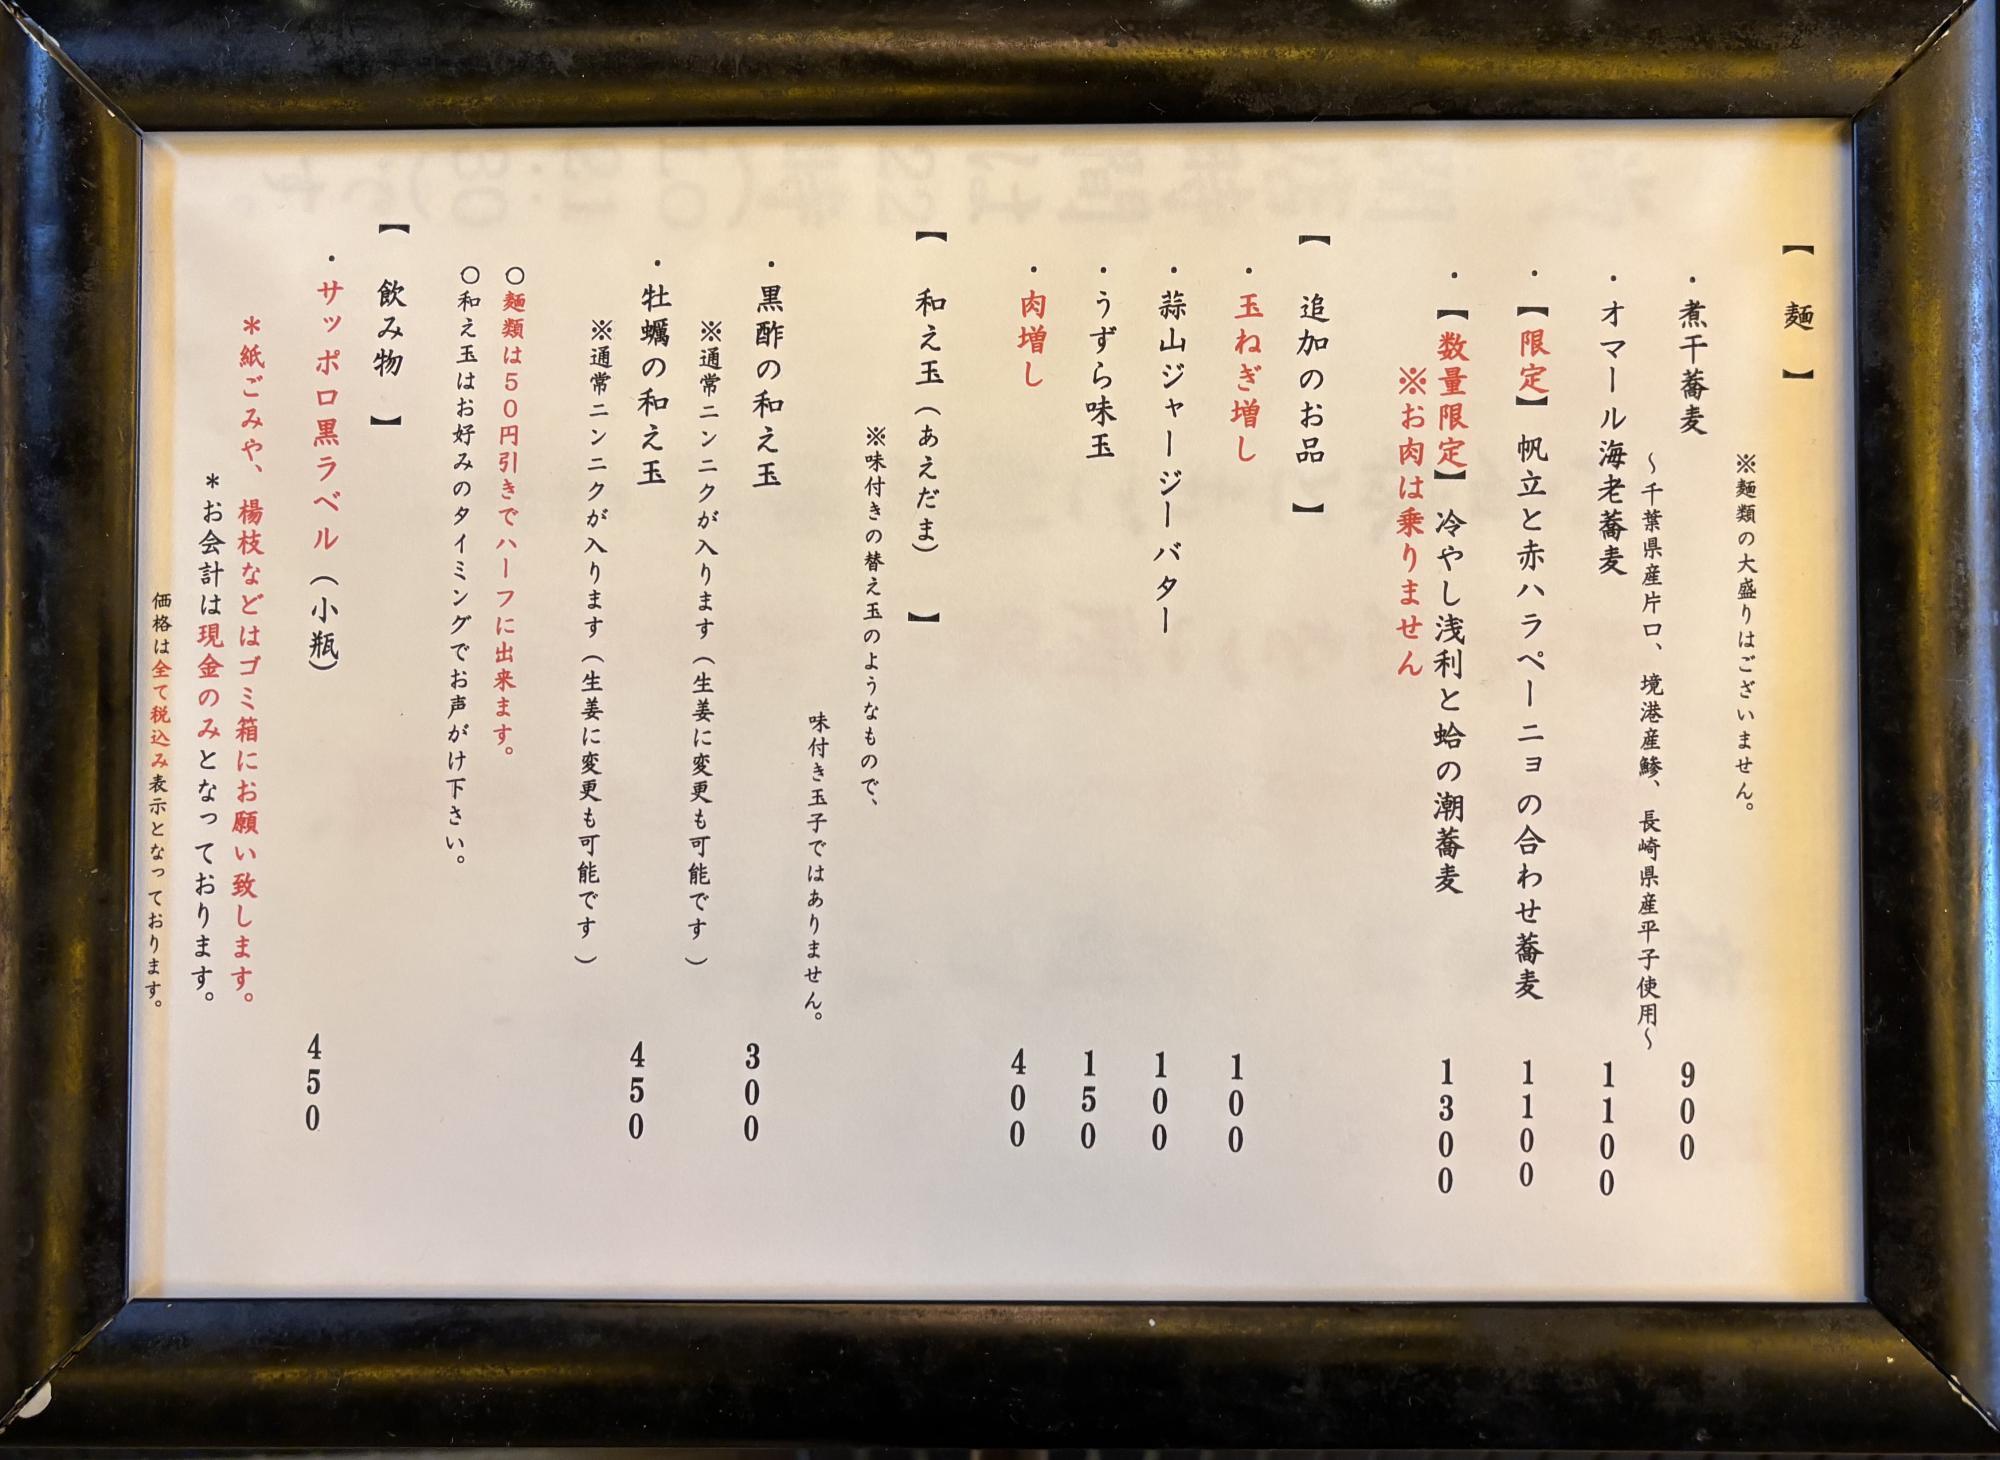 【 麺 】
※麺類の大盛りはございません。
・煮干蕎麦 900
～千葉県産片口、境港産鯵、長崎県産平子使用～
・オマール海老蕎麦 1100
・【限定】帆立と赤ハラペーニョの合わせ蕎麦 1100
・【数量限定】冷やし浅利と蛤の潮蕎麦 1300
※お肉は乗りません
【 追加のお品 】
・玉ねぎ増し 100
・蒜山ジャージーバター 100
・うずら味玉 150
・肉増し 400
【 和え玉（あえだま） 】
※味付きの替え玉のようなもので、
味付き玉子ではありません。
・黒酢の和え玉 300
※通常ニンニクが入ります（生姜に変更も可能です）
・牡蠣の和え玉 450
※通常ニンニクが入ります（生姜に変更も可能です）
〇麺類は50円引きでハーフに出来ます。
〇和え玉はお好みのタイミングでお声がけ下さい。
【 飲み物 】
・サッポロ黒ラベル（小瓶） 450
＊紙ごみや、楊枝などはゴミ箱にお願い致します。
＊お会計は現金のみとなっております。
価格は全て税込み表示となっております。